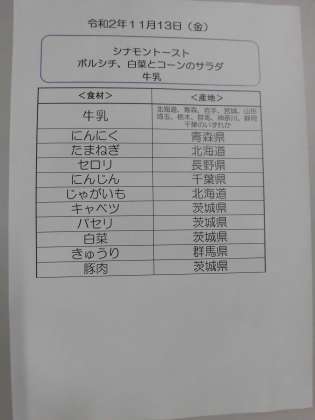 令和2年11月13日（金）
シナモントースト
ボルシチ、白菜とコーンのサラダ
牛乳
＜食材＞ ＜産地＞
牛乳 北海道、青森、岩手、宮城、山形
埼玉、栃木、群馬、神奈川、静岡
千葉のいずれか
にんにく 青森県
たまねぎ 北海道
セロリ 長野県
にんじん 千葉県
じゃがいも 北海道
キャベツ 茨城県
パセリ 茨城県
白菜 茨城県
きゅうり 群馬県
豚肉 茨城県